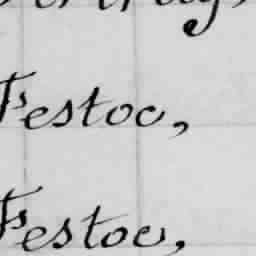 Festoc,
Festoc,